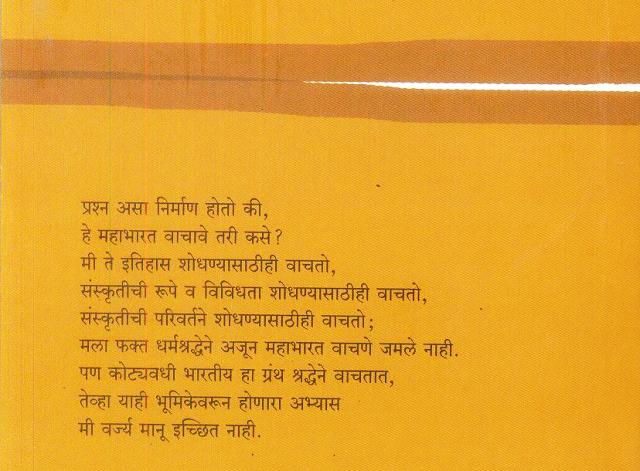 प्रश्न असा निर्माण होतो की,
हे महाभारत वाचावे तरी कसे?
मी ते इतिहास शोधण्यासाठीही वाचतो,
संस्कृतीची रूपे व विविधता शोधण्यासाठीही वाचतो,
संस्कृतीची परिवर्तने शोधण्यासाठीही वाचतो;
मला फक्त धर्मश्रद्धेने अजून महाभारत वाचणे जमले नाही.
पण कोट्यवधी भारतीय हा ग्रंथ श्रद्धेने वाचतात,
तेव्हा याही भूमिकेवरून होणारा अभ्यास
मी वर्ज्य मानू इच्छित नाही.